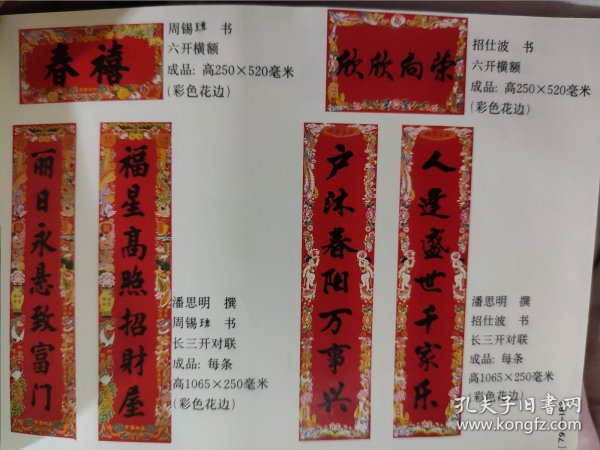 春禧
周锡 书
六开横额
成品: 高250×520毫米
(彩色花边)
欣欣向荣
招仕波 书
六开横额
成品: 高250×520毫米
(彩色花边)
丽日永悬致富门
福星高照招财屋
潘思明 撰
周锡 书
长三开对联
成品: 每条
高1065×250毫米
(彩色花边)
户沐春阳万事兴
人逢盛世千家乐
潘思明 撰
招仕波 书
长三开对联
成品: 每条
高1065×250毫米
(彩色花边)
孔夫子旧书网
www.kongfz.com